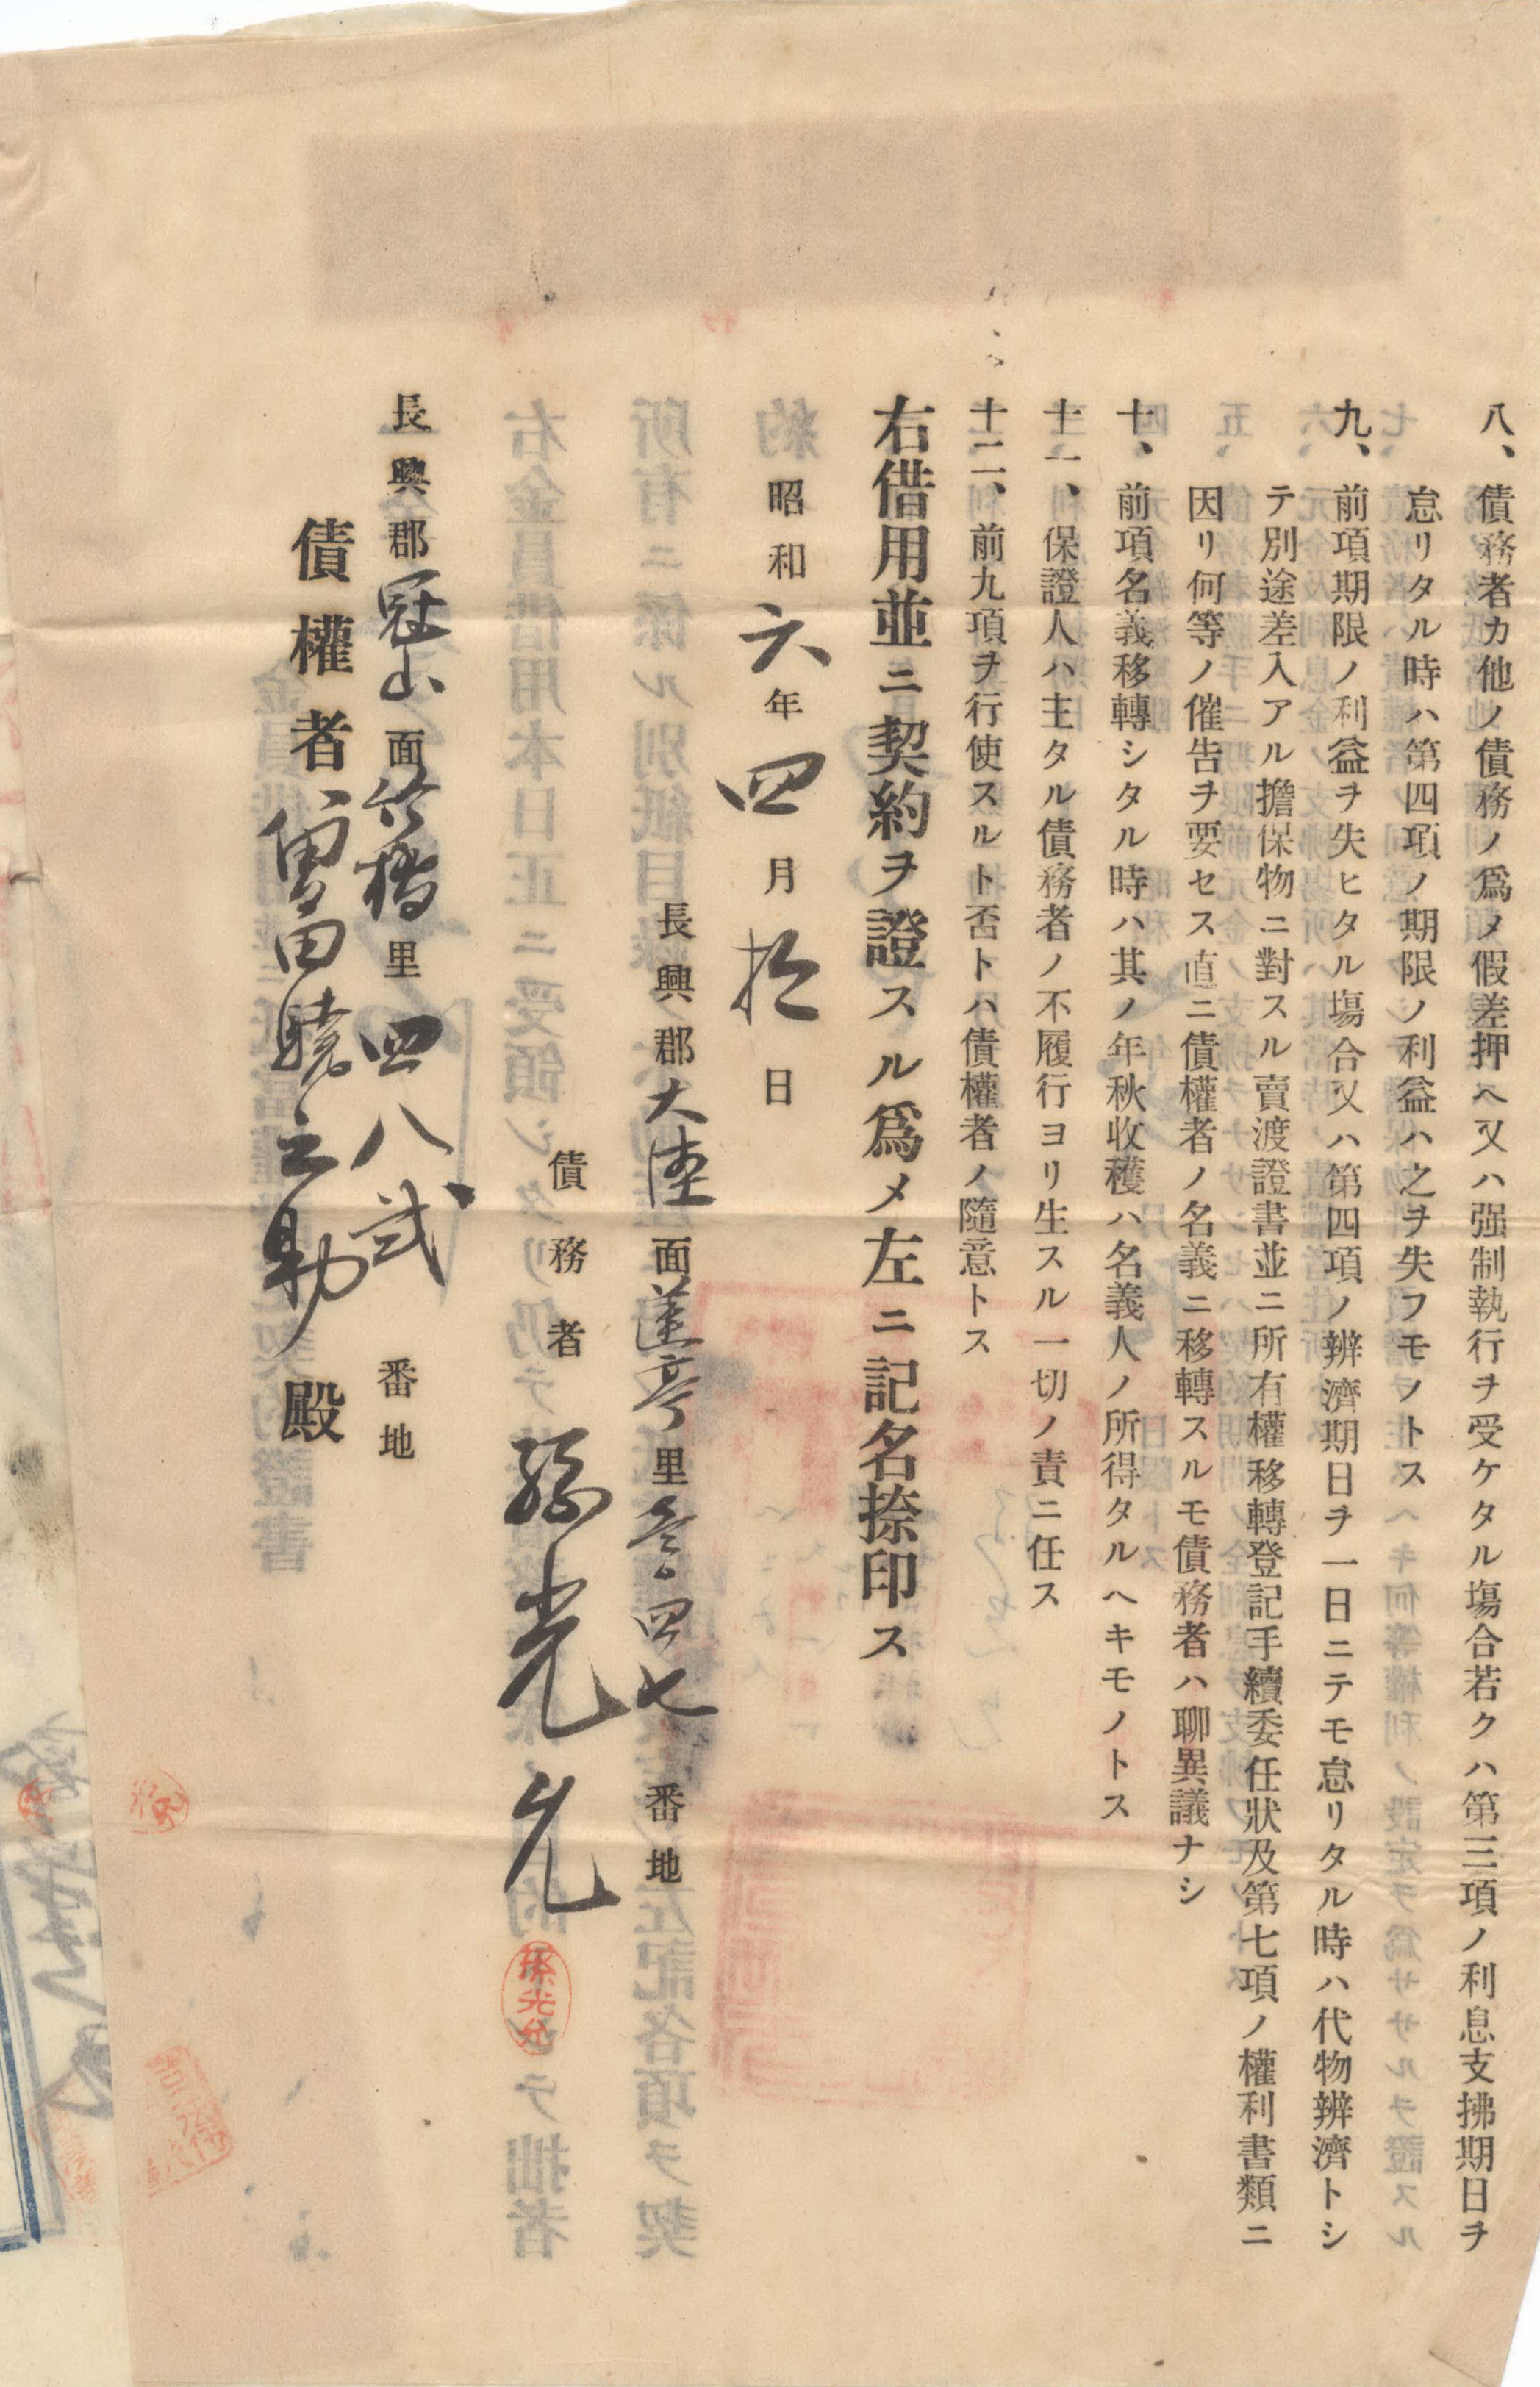 八、債務者カ他ノ債務ノ爲メ假差押ヘ又ハ强制執行ヲ受ケタル塲合若クハ第三項ノ利息支拂期日ヲ
怠リタル時ハ第四項ノ期限ノ利益ハ之ヲ失フモノトス
九、前項期限ノ利益ヲ失ヒタル塲合又ハ第四項ノ辨濟期日ヲ一日ニテモ怠リタル時ハ代物辨濟トシ
テ別途差入アル擔保物ニ對スル賣渡證書並ニ所有權移轉登記手續委任狀及第七項ノ權利書類ニ
因リ何等ノ催告ヲ要セス直ニ債權者ノ名義ニ移轉スルモ債務者ハ聊異議ナシ
十、前項名義移轉シタル時ハ其ノ年秋收穫ハ名義人ノ所得タルヘキモノトス
十一、保證人ハ主タル債務者ノ不履行ヨリ生スル一切ノ責ニ任ス
十二、前九項ヲ行使スルト否トハ債權者ノ隨意トス
右借用並ニ契約ヲ證スル爲メ左ニ記名捺印ス
昭和六年四月拾日
長興郡大陸面蓮亭里參四七番地
債務者 孫光允
孫光允
長興郡冠山面竹橋里四八弐番地
債權者 曽田 之助殿